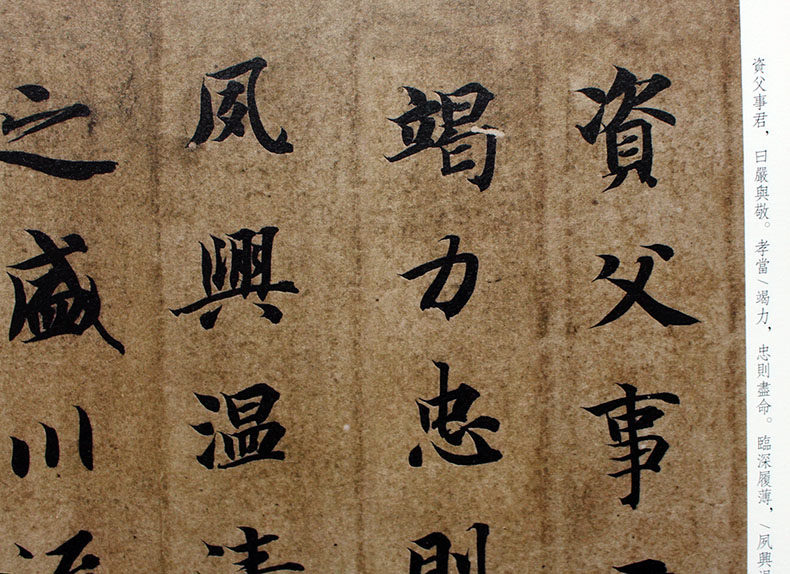 資父事君，曰嚴與敬。孝當／竭力，忠則盡命。臨深履薄，／夙興
資父事
竭力忠則
夙興温
之盛川